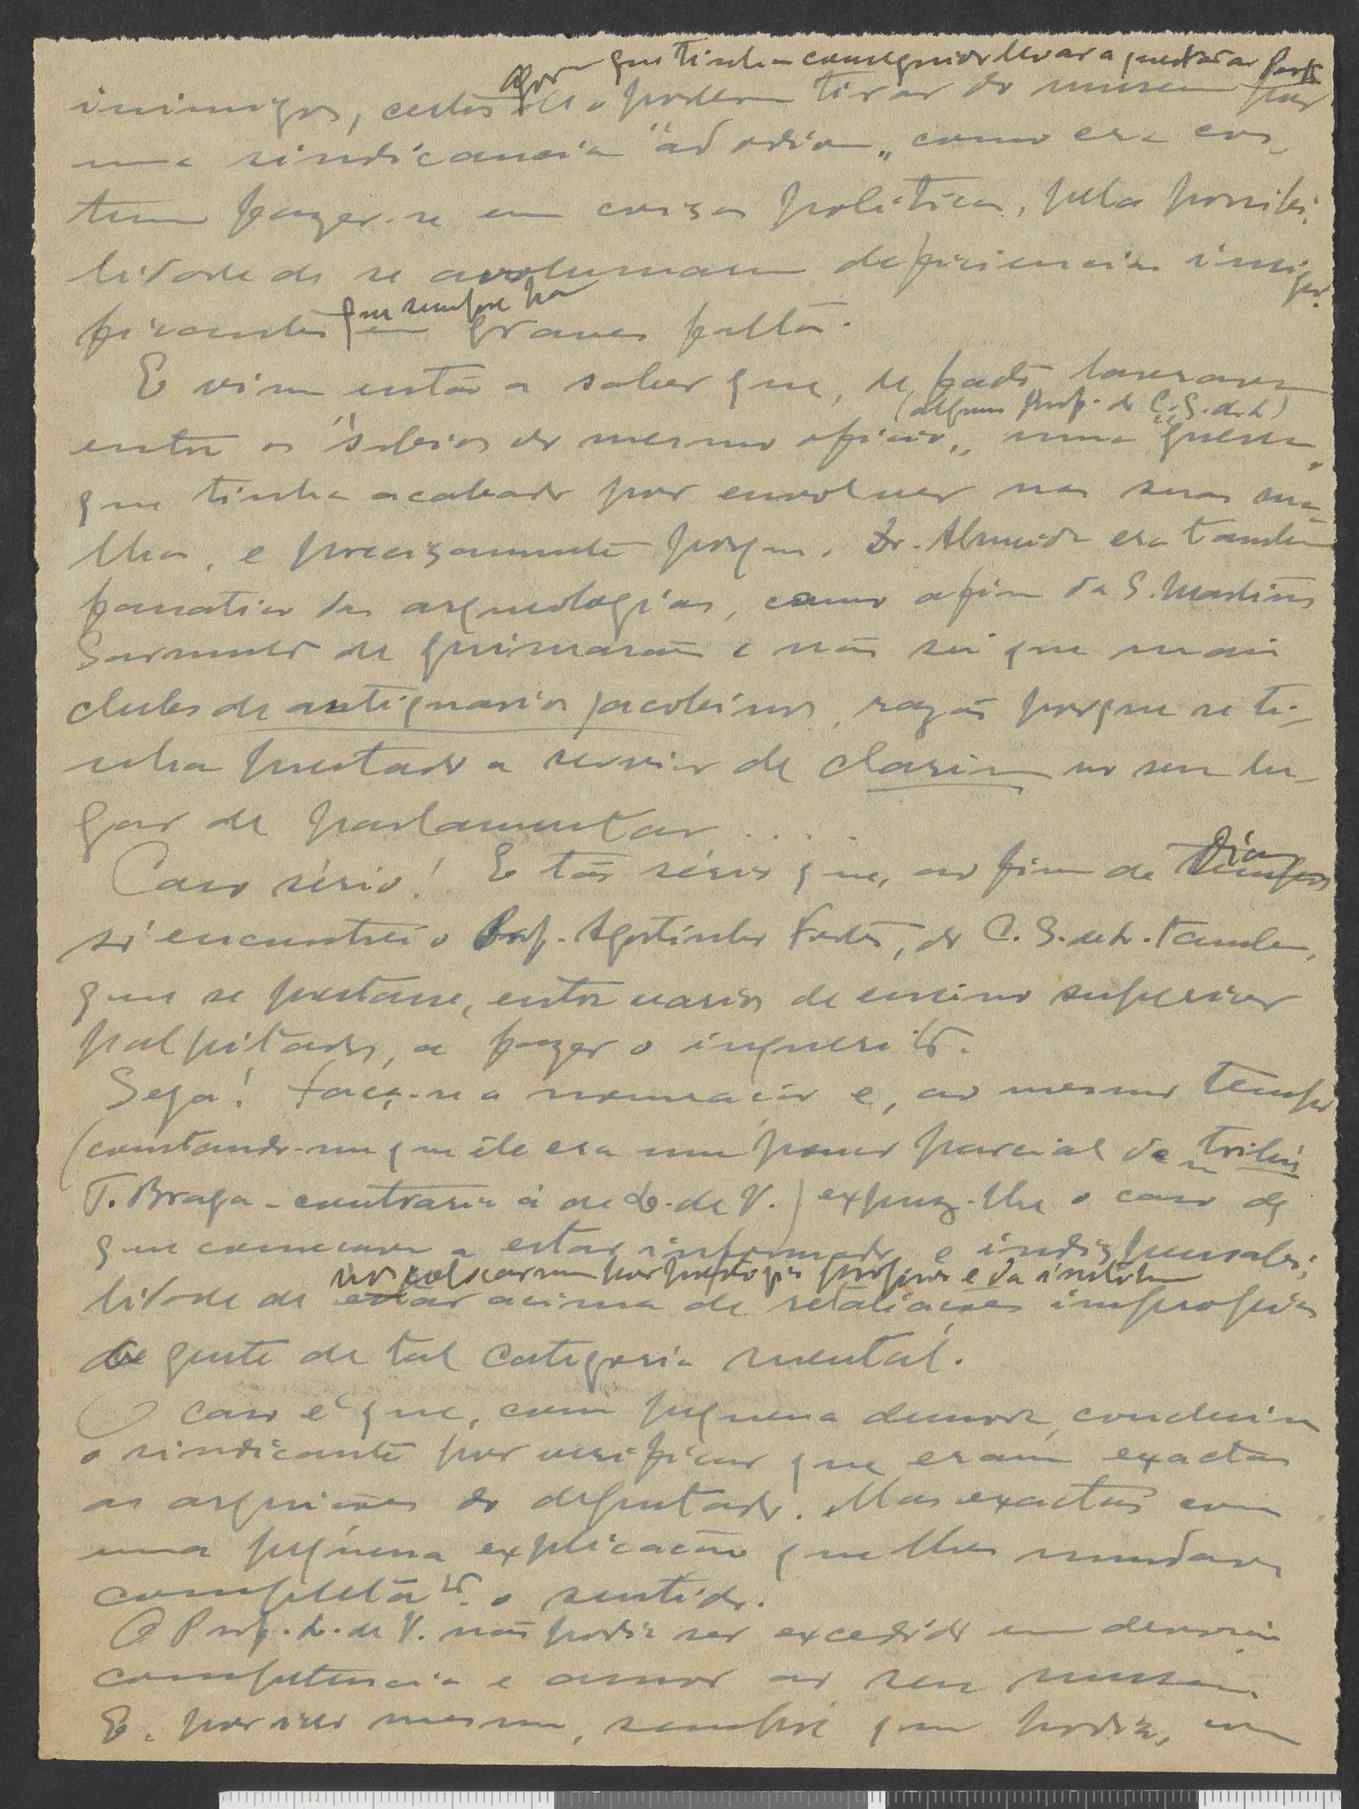 agora que tinham conseguido levar a questão ao Parl.
inimigos, certos de o poderem tirar do museu por
uma sindicancia "ad odium" como era cos-
tume fazer-se em coisas politicas, pela possibi-
lidade de se avolumarem deficiencias insigni-
ficantes que sempre ha em graves faltas.
E vim então a saber que, de facto, lavrava
(alguns prof. da C. S. de L.)
entre os "sabios do mesmo oficio" uma "guerra"
que tinha acabado por envolver nas suas ma-
lhas, e precizamente porque o Dr. Almeida era tambem
fanatico das arqueologias, como afim da S. Martins
Sarmento de Guimarães e não sei que mais
clubes de antiquarios jacobinos, razão porque se ti-
nha prestado a servir de clarim no seu lu-
gar de parlamentar ....
Caso sério! E tão sério que, ao fim de dias
só encontrei o Prof. Agostinho Fortes, da C. S. de L. tambem,
que se prestasse, entre varios de ensino superior
palpitados, a fazer o inquerito.
Seja! Faça-se a nomeação e, ao mesmo tempo
(constando-me que êle era um pouco parcial da tribu
T. Braga - contraria á de L. de V.) expuz-lhe o caso de
que começava a estar informado e indispensabi-
no colocarmo por prestigio proprio e da instituição
lidade de estar acima de retaliações improprias
de gente de tal categoria mental.
O caso é que, com pequena demora, concluiu
o sindicante por verificar que eram exactas
as arguições do deputado. Mas exactas com
uma pequena explicação que lhes mudava
completa to. o sentido.
O Prof. L. de V. não podia ser excedido em devoção
competencia e amor ao seu museu.
E, por isso mesmo, sempre que podia, em